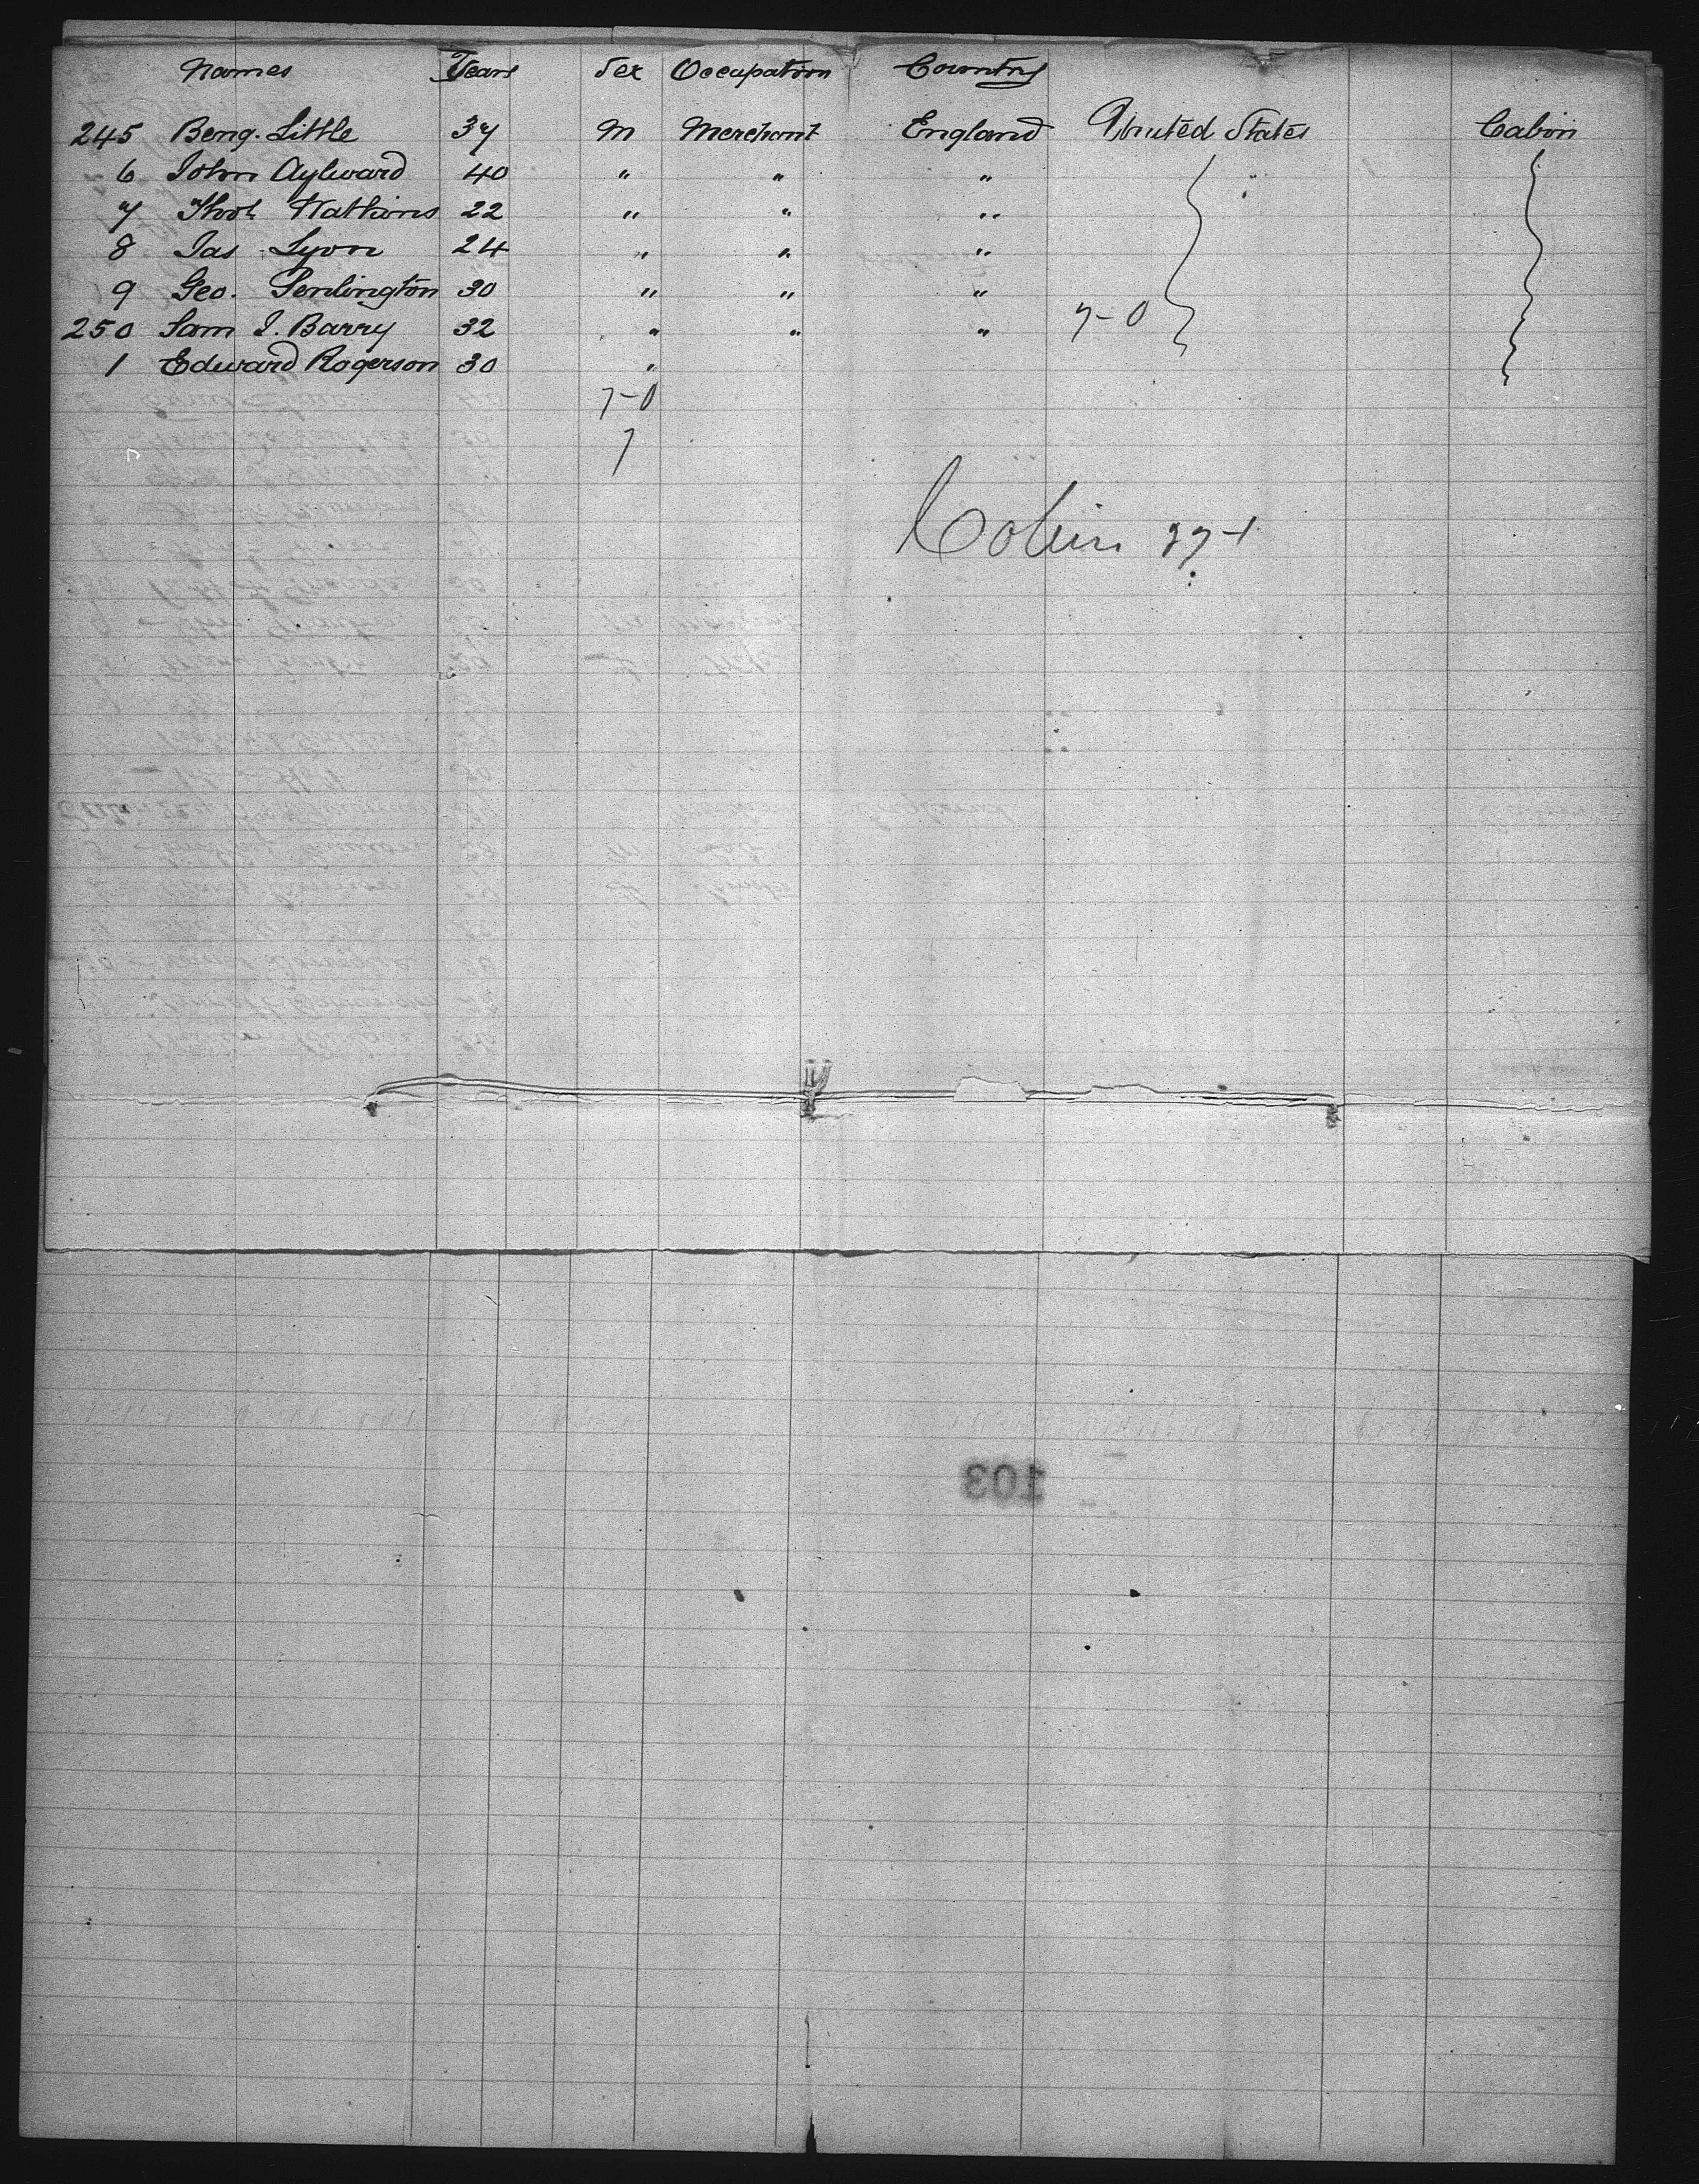 Names Years Sex Occupation Country
245 Benj. Little 37 M Merchant England United States Cabin
6 John Aylward 40 " " "
7 Thos Watkins 22 " " "
8 Jas Lyon 24 " " "
9 Geo. Penlington 30 " " "
250 Sam J. Barry 32 " " " 7-0
1 Edward Rogerson 30 "
7-0
7
Cabin 37-1
103